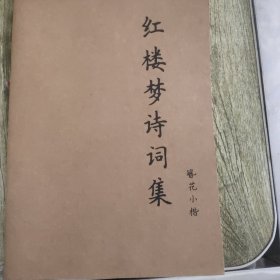 红楼梦诗词集
簪花小楷